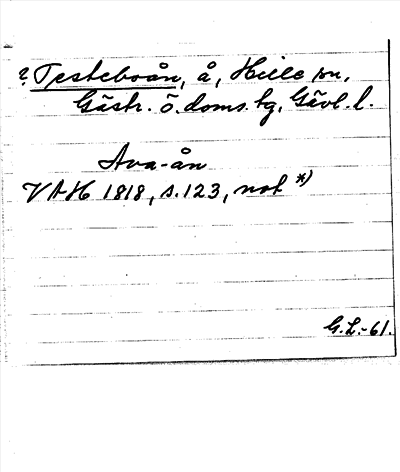 ? Testeboån, å, Hille sn,
Gästr. ö. doms. tg, Gävl. l.
Ava-ån
VAH 1818, s. 123, not *)
G.L.-61.